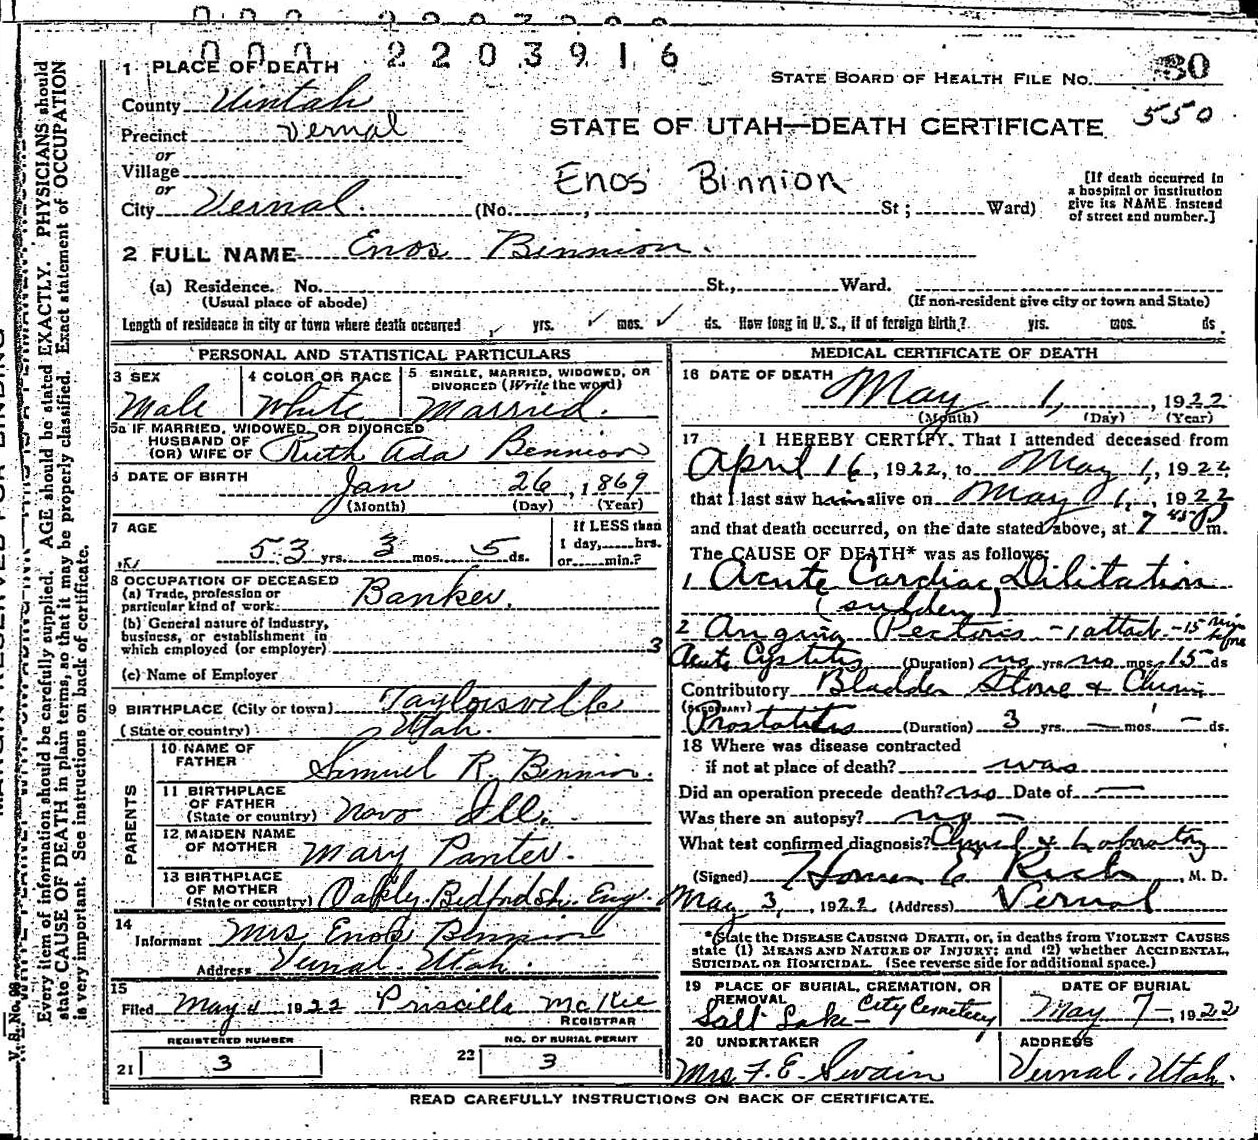 000 2203916
1 PLACE OF DEATH
STATE BOARD OF HEALTH FILE No. 30
County Uintah
550
Precinct Vernal
STATE OF UTAH—DEATH CERTIFICATE
or
Village
Enos Binnion
or
City Vernal. (No. , St ; Ward)
[If death occurred in a hospital or institution give its NAME instead of street and number.]
2 FULL NAME Enos Bennion.
(a) Residence. No. St., Ward.
(Usual place of abode) (If non-resident give city or town and State)
Length of residence in city or town where death occurred yrs. mos. ds. How long in U. S., if of foreign birth? yrs. mos. ds.
PERSONAL AND STATISTICAL PARTICULARS
3 SEX
Male
4 COLOR OR RACE
White
5 SINGLE, MARRIED, WIDOWED, OR DIVORCED (Write the word)
Married.
5a IF MARRIED, WIDOWED, OR DIVORCED
HUSBAND OF
(OR) WIFE OF Ruth Ada Bennion
6 DATE OF BIRTH Jan 26, 1869
(Month) (Day) (Year)
7 AGE
53 yrs. 3 mos. 5 ds.
If LESS than
1 day, hrs.
or min.?
8 OCCUPATION OF DECEASED
(a) Trade, profession or
particular kind of work. Banker.
(b) General nature of Industry,
business, or establishment in
which employed (or employer) 3
(c) Name of Employer
9 BIRTHPLACE (City or town) Taylorsville
(State or country) Utah.
PARENTS
10 NAME OF
FATHER Samuel R. Bennion.
11 BIRTHPLACE
OF FATHER
(State or country) Novo Ill.
12 MAIDEN NAME
OF MOTHER Mary Panter.
13 BIRTHPLACE
OF MOTHER
(State or country) Oakly. Bedfordsh. Eng.
14
Informant Mrs. Enos Bennion
Address Vernal Utah.
15
Filed May 4 1922 Priscilla McKie
REGISTRAR
REGISTERED NUMBER
21 3
NO. OF BURIAL PERMIT
22 3
MEDICAL CERTIFICATE OF DEATH
16 DATE OF DEATH
May 1, , 1922
(Month) (Day) (Year)
17 I HEREBY CERTIFY, That I attended deceased from
April 16, 1922, to May 1, 1922
that I last saw him alive on May 1, 1922
and that death occurred, on the date stated above, at 7 45 P m.
The CAUSE OF DEATH* was as follows:
1 Acute Cardiac Dilitation
(sudden)
2 Angina Pectoris - 1 attack - 15 min before
Acute Cystitis (Duration) no yrs no mos. 15 ds
Contributory Bladder Stone & Chronic
(SECONDARY)
Prostatitis (Duration) 3 yrs. — mos. — ds.
18 Where was disease contracted
if not at place of death? was
Did an operation precede death? no Date of —
Was there an autopsy? no -
What test confirmed diagnosis? Clinical & Laboratory
(Signed) Homer E Rich, M. D.
May 3, , 1922 (Address) Vernal
*State the DISEASE CAUSING DEATH, or, in deaths from VIOLENT CAUSES
state (1) MEANS AND NATURE OF INJURY; and (2) whether ACCIDENTAL,
SUICIDAL OR HOMICIDAL. (See reverse side for additional space.)
19 PLACE OF BURIAL, CREMATION, OR
REMOVAL
Salt Lake City Cemetery
DATE OF BURIAL
May 7 -, 1922
20 UNDERTAKER
Mrs F. E. Swain
ADDRESS
Vernal. Utah.
READ CAREFULLY INSTRUCTIONS ON BACK OF CERTIFICATE.
Every item of information should be carefully supplied. AGE should be stated EXACTLY. PHYSICIANS should
state CAUSE OF DEATH in plain terms, so that it may be properly classified. Exact statement of OCCUPATION
is very important. See instructions on back of certificate.